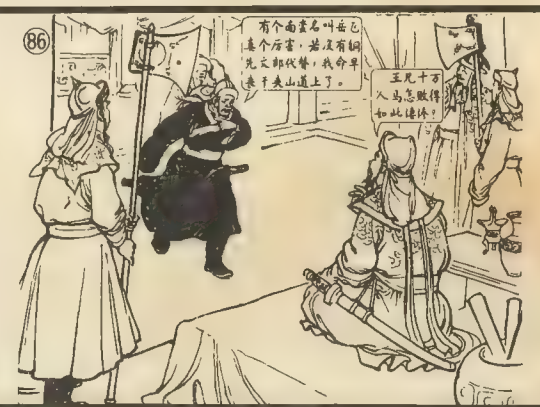 86
有个南蛮名叫岳飞
真个厉害，若没有铜
先文郎代替，我命早
丧于夹山道上了。
王兄十万
人马怎败得
如此凄惨？